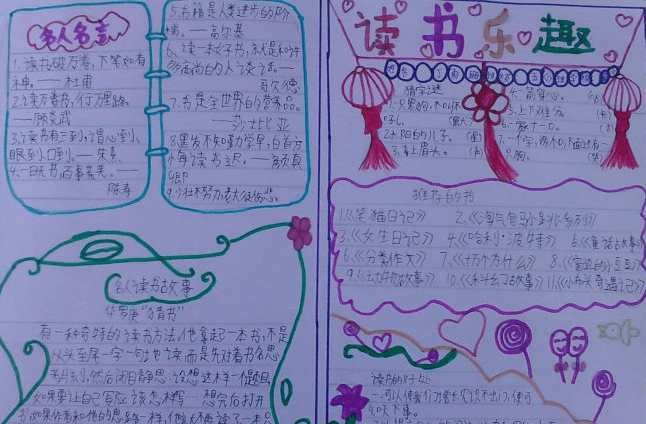 名人名言
1.读书破万卷,下笔如有
神。——杜甫
2.读万卷书,行万里路。
——顾炎武
3.读书有三到,谓心到、
眼到、口到。——朱熹
4.一日无书,百事荒芜。——
陈寿
5.书籍是人类进步的阶
梯。——高尔基
6.读一本好书,就是和许
多高尚的人谈话。——
歌德
7.书是全世界的营养品。
——莎士比亚
8.黑发不知勤学早,白首方
悔读书迟。——颜真
卿
9.少壮不努力,老大徒伤悲。
读书乐趣
猜字谜
1.一只黑狗,不叫不
吼。
2.太阳的儿子。
3.上下难分。
4.一箭穿心。
推荐的书
1.《笑猫日记》 2.《淘气包马小跳系列》
3.《女生日记》 4.《哈利·波特》 5.《童话故事》
6.《分类作文》 7.《十万个为什么》 8.《窗边的小豆豆》
10.《科幻故事》 11.《小布头奇遇记》
名人读书故事
华罗庚“猜书”
有一种奇特的读书方法,他拿起一本书,不是
从头至尾一字一句地读,而是先对着书名思
考片刻,然后闭目静思,设想这样一个题目,
如果要让自己写应该怎样写……想完后打开
书,如果作者和他的思路一样,他就不再读了
读书的好处
一.可以使我们
知天下事。